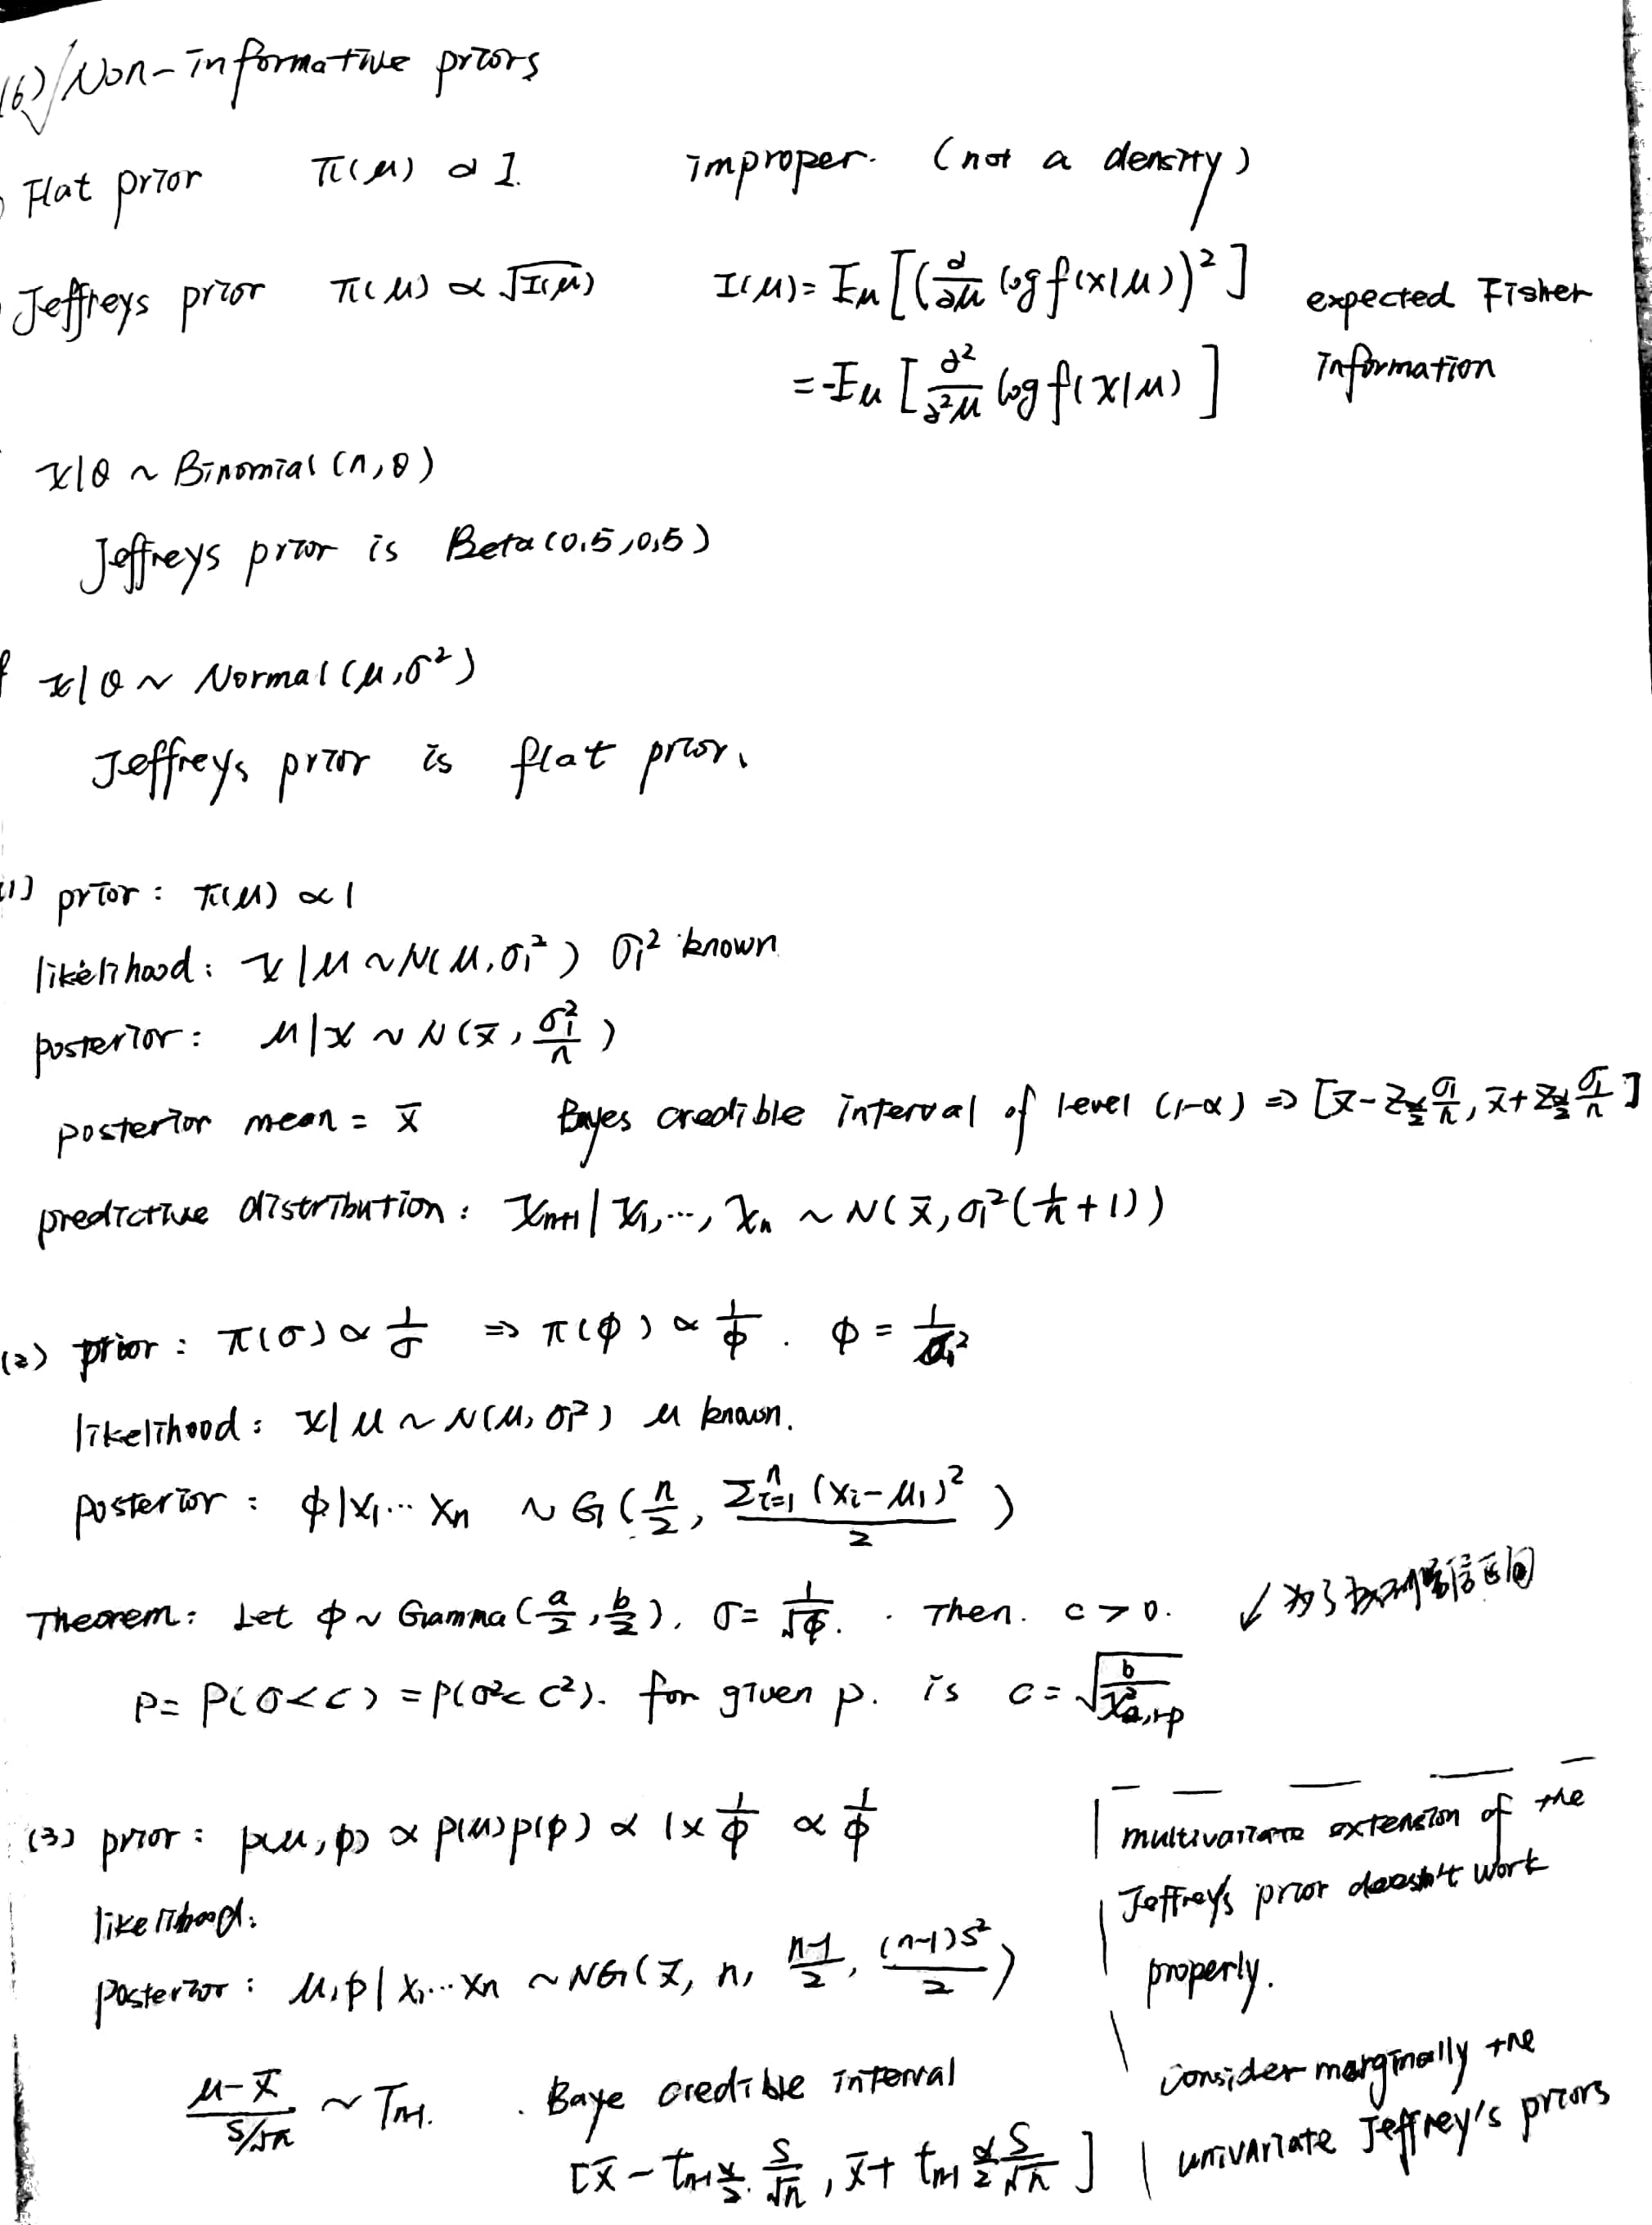 (6) Non-informative priors
Flat prior π(μ) ∝ 1. improper. (not a density)
Jeffreys prior π(μ) ∝ √I(μ) I(μ) = Eμ[(∂/∂μ log f(x|μ))²] expected Fisher
= -Eμ[∂²/∂²μ log f(x|μ)] Information
x|θ ~ Binomial(n, θ)
Jeffreys prior is Beta(0.5, 0.5)
x|θ ~ Normal(μ, σ²)
Jeffreys prior is flat prior.
(1) prior: π(μ) ∝ 1
likelihood: x|μ ~ N(μ, σ₁²) σ₁² known
posterior: μ|x ~ N(x̄, σ₁²/n)
posterior mean = x̄ Bayes credible interval of level (1-α) ⇒ [x̄ - Z_{α/2} σ₁/n, x̄ + Z_{α/2} σ₁/n]
predictive distribution: x_{n+1}|x₁, ..., x_n ~ N(x̄, σ₁²(1/n + 1))
(2) prior: π(σ) ∝ 1/σ ⇒ π(φ) ∝ 1/φ. φ = 1/σ₁²
likelihood: x|μ ~ N(μ, σ₁²) μ known.
posterior: φ|x₁...x_n ~ G(n/2, Σ_{i=1}^n (x_i - μ₁)²/2)
Theorem: Let φ ~ Gamma(a/2, b/2), σ = 1/√φ. Then. c > 0. ↙ 为了 区间
P = P(σ < c) = P(σ² < c²). for given p. is c = √(b/χ²_{a,1-p})
(3) prior: p(μ, φ) ∝ p(μ)p(φ) ∝ 1 × 1/φ ∝ 1/φ
likelihood:
posterior: μ, φ|x₁...x_n ~ NG(x̄, n, n-1/2, (n-1)s²/2)
μ-x̄ / s/√n ~ T_{n-1}. Baye credible interval
[x̄ - t_{n-1} α/2 · s/√n, x̄ + t_{n-1} α/2 s/√n]
multivariate extension of the
Jeffrey's prior doesn't work
properly.
consider marginally the
univariate Jeffrey's priors